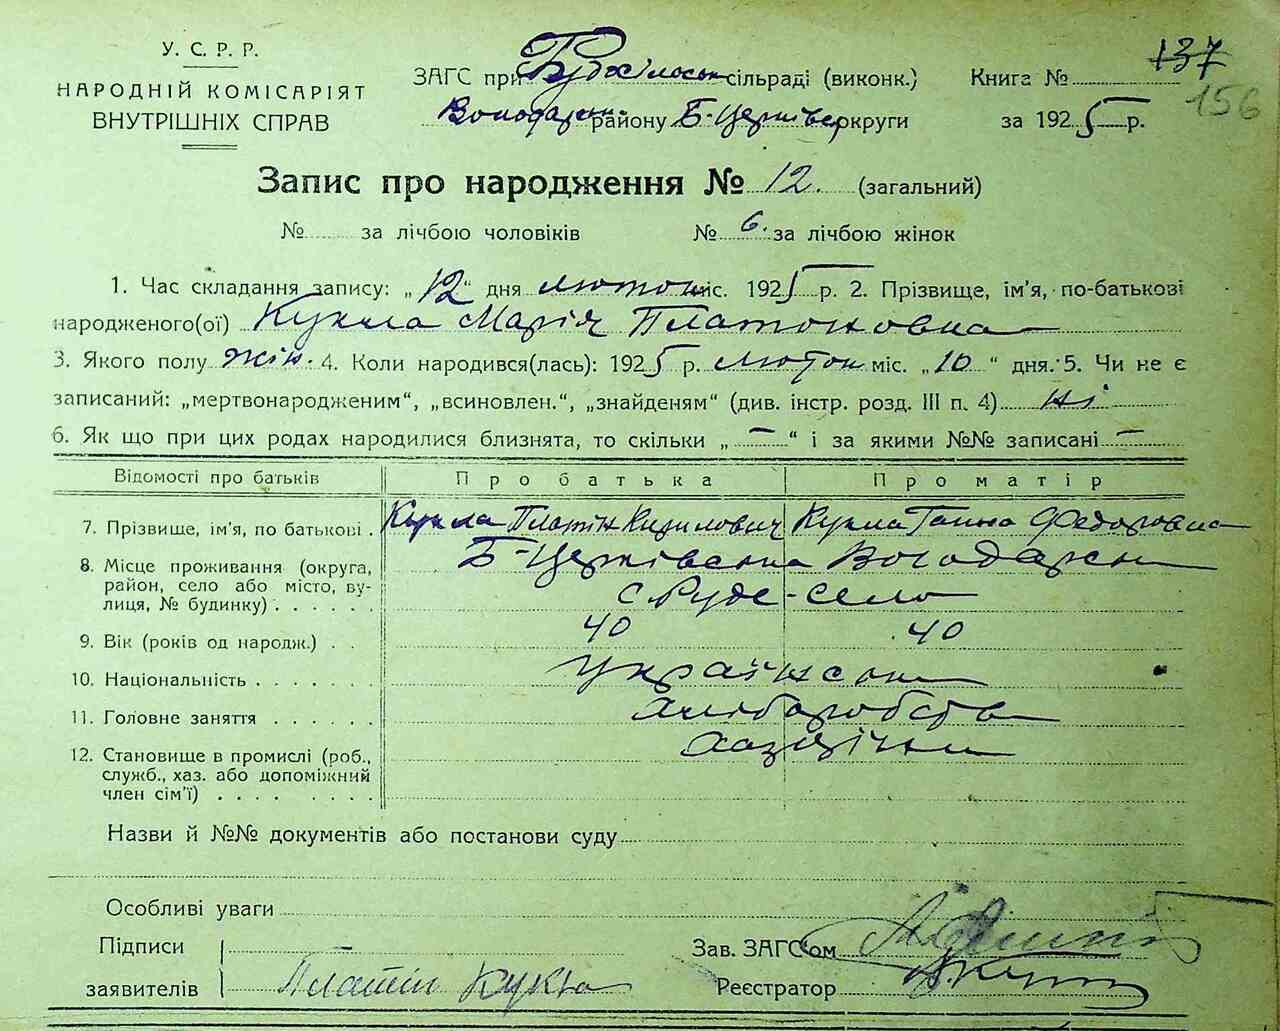 У. С. Р. Р.
НАРОДНІЙ КОМІСАРІЯТ
ВНУТРІШНІХ СПРАВ
ЗАГС при сільраді (виконк.)
Володарськ району Б-Церківськ округи
Книга № 137
156
за 1925 р.
Запис про народження № 12. (загальний)
№ за лічбою чоловіків № 6. за лічбою жінок
1. Час складання запису: „12“ дня лютого міс. 1925 р. 2. Прізвище, ім'я, по-батькові
народженого(ої) Кукла Марія Платоновна
3. Якого полу жін. 4. Коли народився(лась): 1925 р. лютого міс. „10“ дня. 5. Чи не є
записаний: „мертвонародженим“, „всиновлен.“, „знайденям“ (див. інстр. розд. III п. 4) ні
6. Як що при цих родах народилися близнята, то скільки „–“ і за якими №№ записані –
Відомості про батьків Про батька Про матір
7. Прізвище, ім'я, по батькові . Кукла Платін Кирилович Кукла Ганна Федоровна
8. Місце проживання (округа, район, село або місто, вулиця, № будинку) . . . . . . Б-Церківська Володарськ
с. Руде-село
9. Вік (років од народж.) . . 40 40
10. Національність . . . . . . українська
11. Головне заняття . . . . . . хліборобство
12. Становище в промислі (роб., служб., хаз. або допоміжний член сім'ї) . . . . . . . .
Назви й №№ документів або постанови суду
Особливі уваги
Підписи
заявителів Платін Кукла
Зав. ЗАГС'ом
Реєстратор